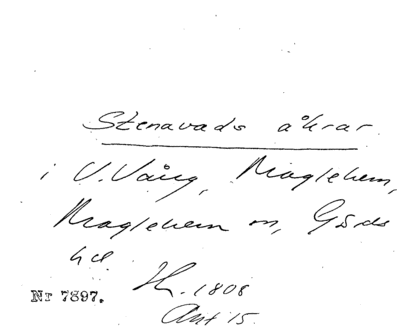 Stenavads åkrar
i V. Vång, Maglehem,
Maglehem sn, Gärds
hd.
Nr 7897.
H. 1808
Akt 15